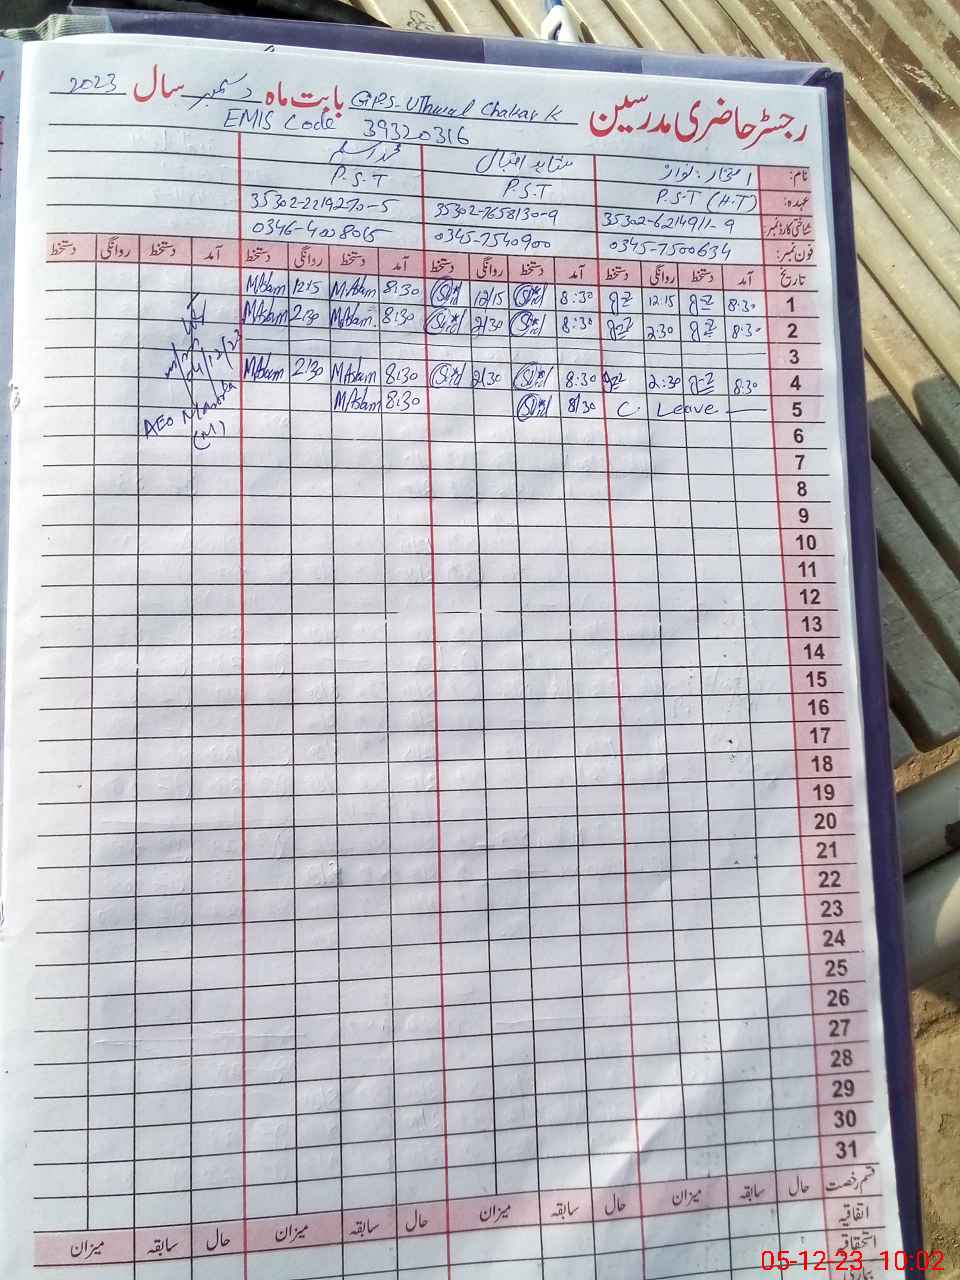 رجسٹر حاضری مدرسین GPS-Uthwal Chakar K بابت ماہ دسمبر سال 2023
EMIS Code 39320316
نام: شاہد اقبال محمد اسلم
عہدہ: P.S.T (H.T) P.S.T P.S.T
شناختی کارڈ نمبر: 35302-6214911-9 35302-7658130-9 35302-2219270-5
فون نمبر: 0345-7500634 0345-7540900 0346-4008015
تاریخ آمد دستخط روانگی دستخط آمد دستخط روانگی دستخط آمد دستخط روانگی دستخط آمد دستخط روانگی دستخط
1 8:30 12:15 8:30 12/15 8:30 MAslam 12:15 MAslam
2 8:30 2:30 8:30 2/30 8:30 MAslam 2:30 MAslam
3
4 8:30 2:30 8:30 2/30 8:30 MAslam 2:30 MAslam
5 C. Leave 8/30 8:30 MAslam
04/12/23
AEO
(M)
6
7
8
9
10
11
12
13
14
15
16
17
18
19
20
21
22
23
24
25
26
27
28
29
30
31
قسم رخصت حال سابقہ میزان حال سابقہ میزان حال سابقہ میزان حال سابقہ میزان
اتفاقیہ
استحقاقیہ
05-12-23 10:02